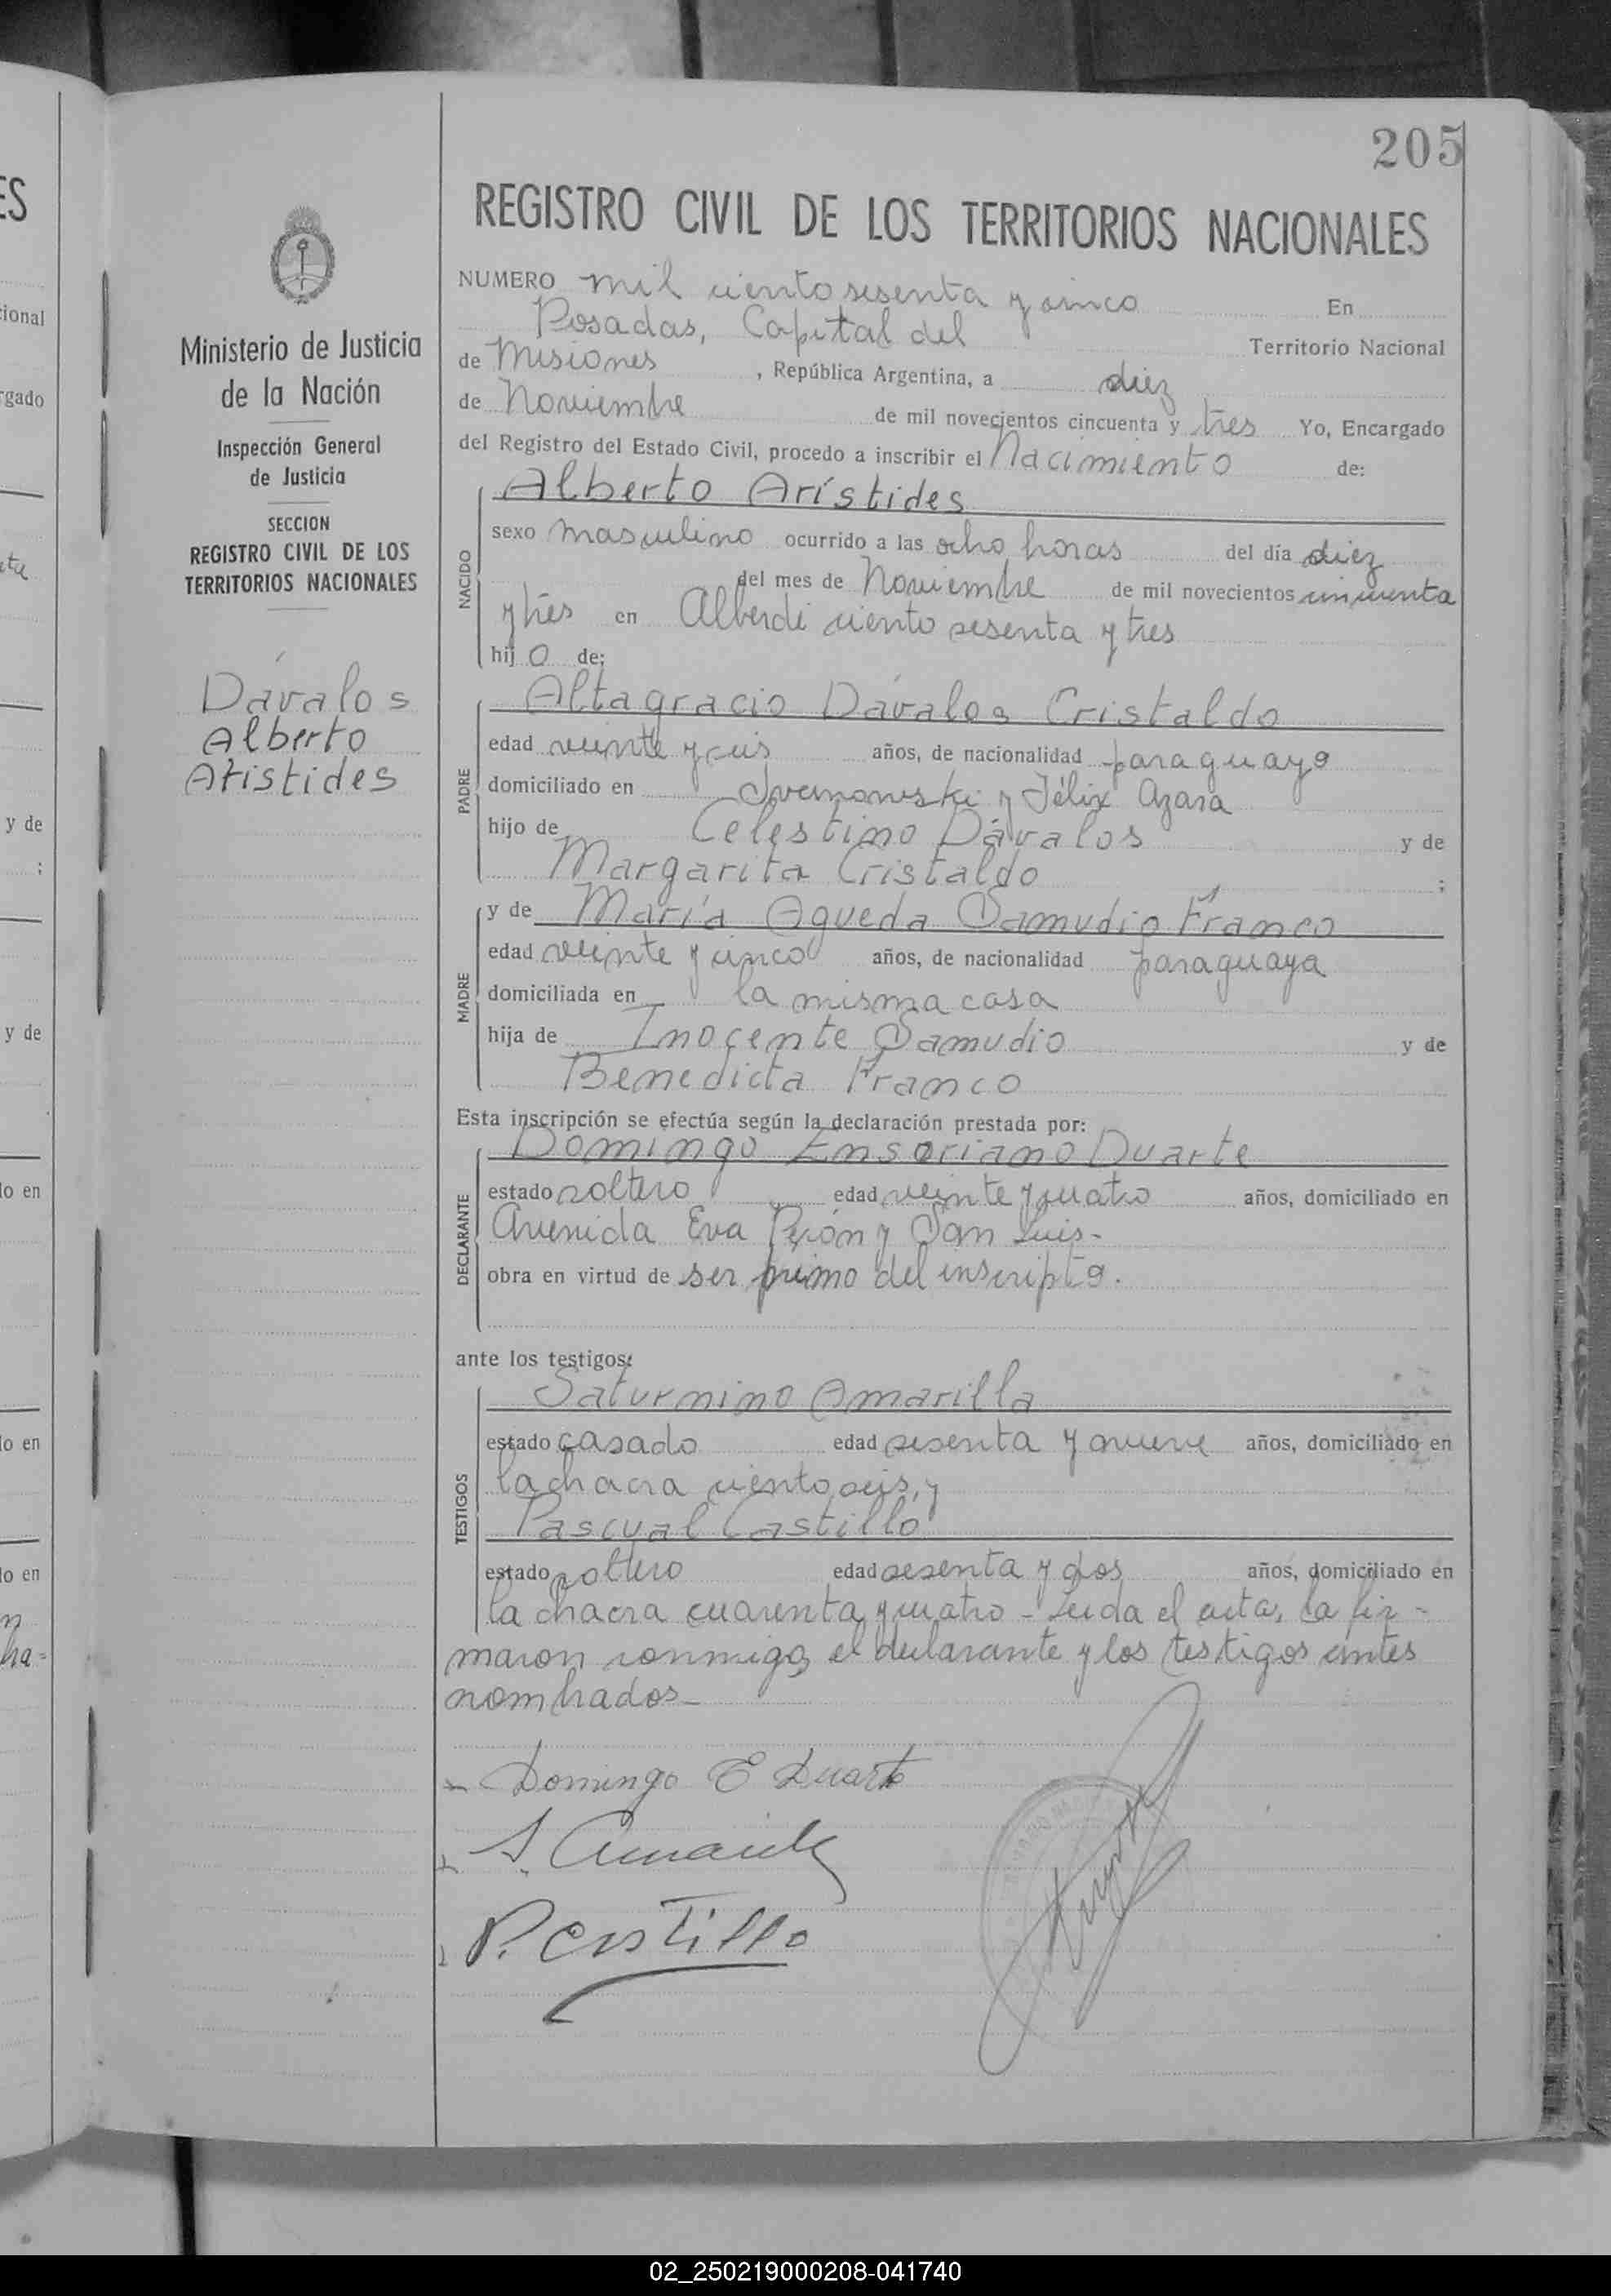 205
REGISTRO CIVIL DE LOS TERRITORIOS NACIONALES
NUMERO mil ciento sesenta y cinco En
Posadas, Capital del Territorio Nacional
de Misiones , República Argentina, a diez
de Noviembre de mil novecientos cincuenta y tres Yo, Encargado
del Registro del Estado Civil, procedo a inscribir el Nacimiento de:
Alberto Arístides
NACIDO
sexo masculino ocurrido a las ocho horas del día diez
del mes de Noviembre de mil novecientos cincuenta
y tres en Alberdi ciento sesenta y tres
hijo de:
Altagracio Dávalos Cristaldo
PADRE
edad veinte y seis años, de nacionalidad paraguayo
domiciliado en y Félix Azara
hijo de Celestino Dávalos y de
Margarita Cristaldo ;
y de María Agueda Samudio Franco
MADRE
edad veinte y cinco años, de nacionalidad paraguaya
domiciliada en la misma casa
hija de Inocente Samudio y de
Benedicta Franco
Esta inscripción se efectúa según la declaración prestada por:
Domingo Ensoriano Duarte
DECLARANTE
estado soltero edad veinte y cuatro años, domiciliado en
Avenida Eva Perón y San Luis-
obra en virtud de ser primo del inscripto.
ante los testigos:
Saturnino Amarilla
TESTIGOS
estado casado edad sesenta y nueve años, domiciliado en
la chacra ciento seis, y
Pascual Castillo
estado soltero edad sesenta y dos años, domiciliado en
la chacra cuarenta y cuatro - Leida el acta, la fir-
maron conmigo, el declarante y los testigos antes
nombrados-
Domingo E Duarte
S. Amarilla
P. Castillo
Ministerio de Justicia
de la Nación
Inspección General
de Justicia
SECCION
REGISTRO CIVIL DE LOS
TERRITORIOS NACIONALES
Dávalos
Alberto
Arístides
ES
cional
rgado
y de
;
y de
lo en
lo en
lo en
ha-
02_250219000208-041740